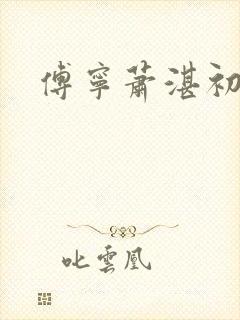 傅寧蕭湛初
叱雲凰